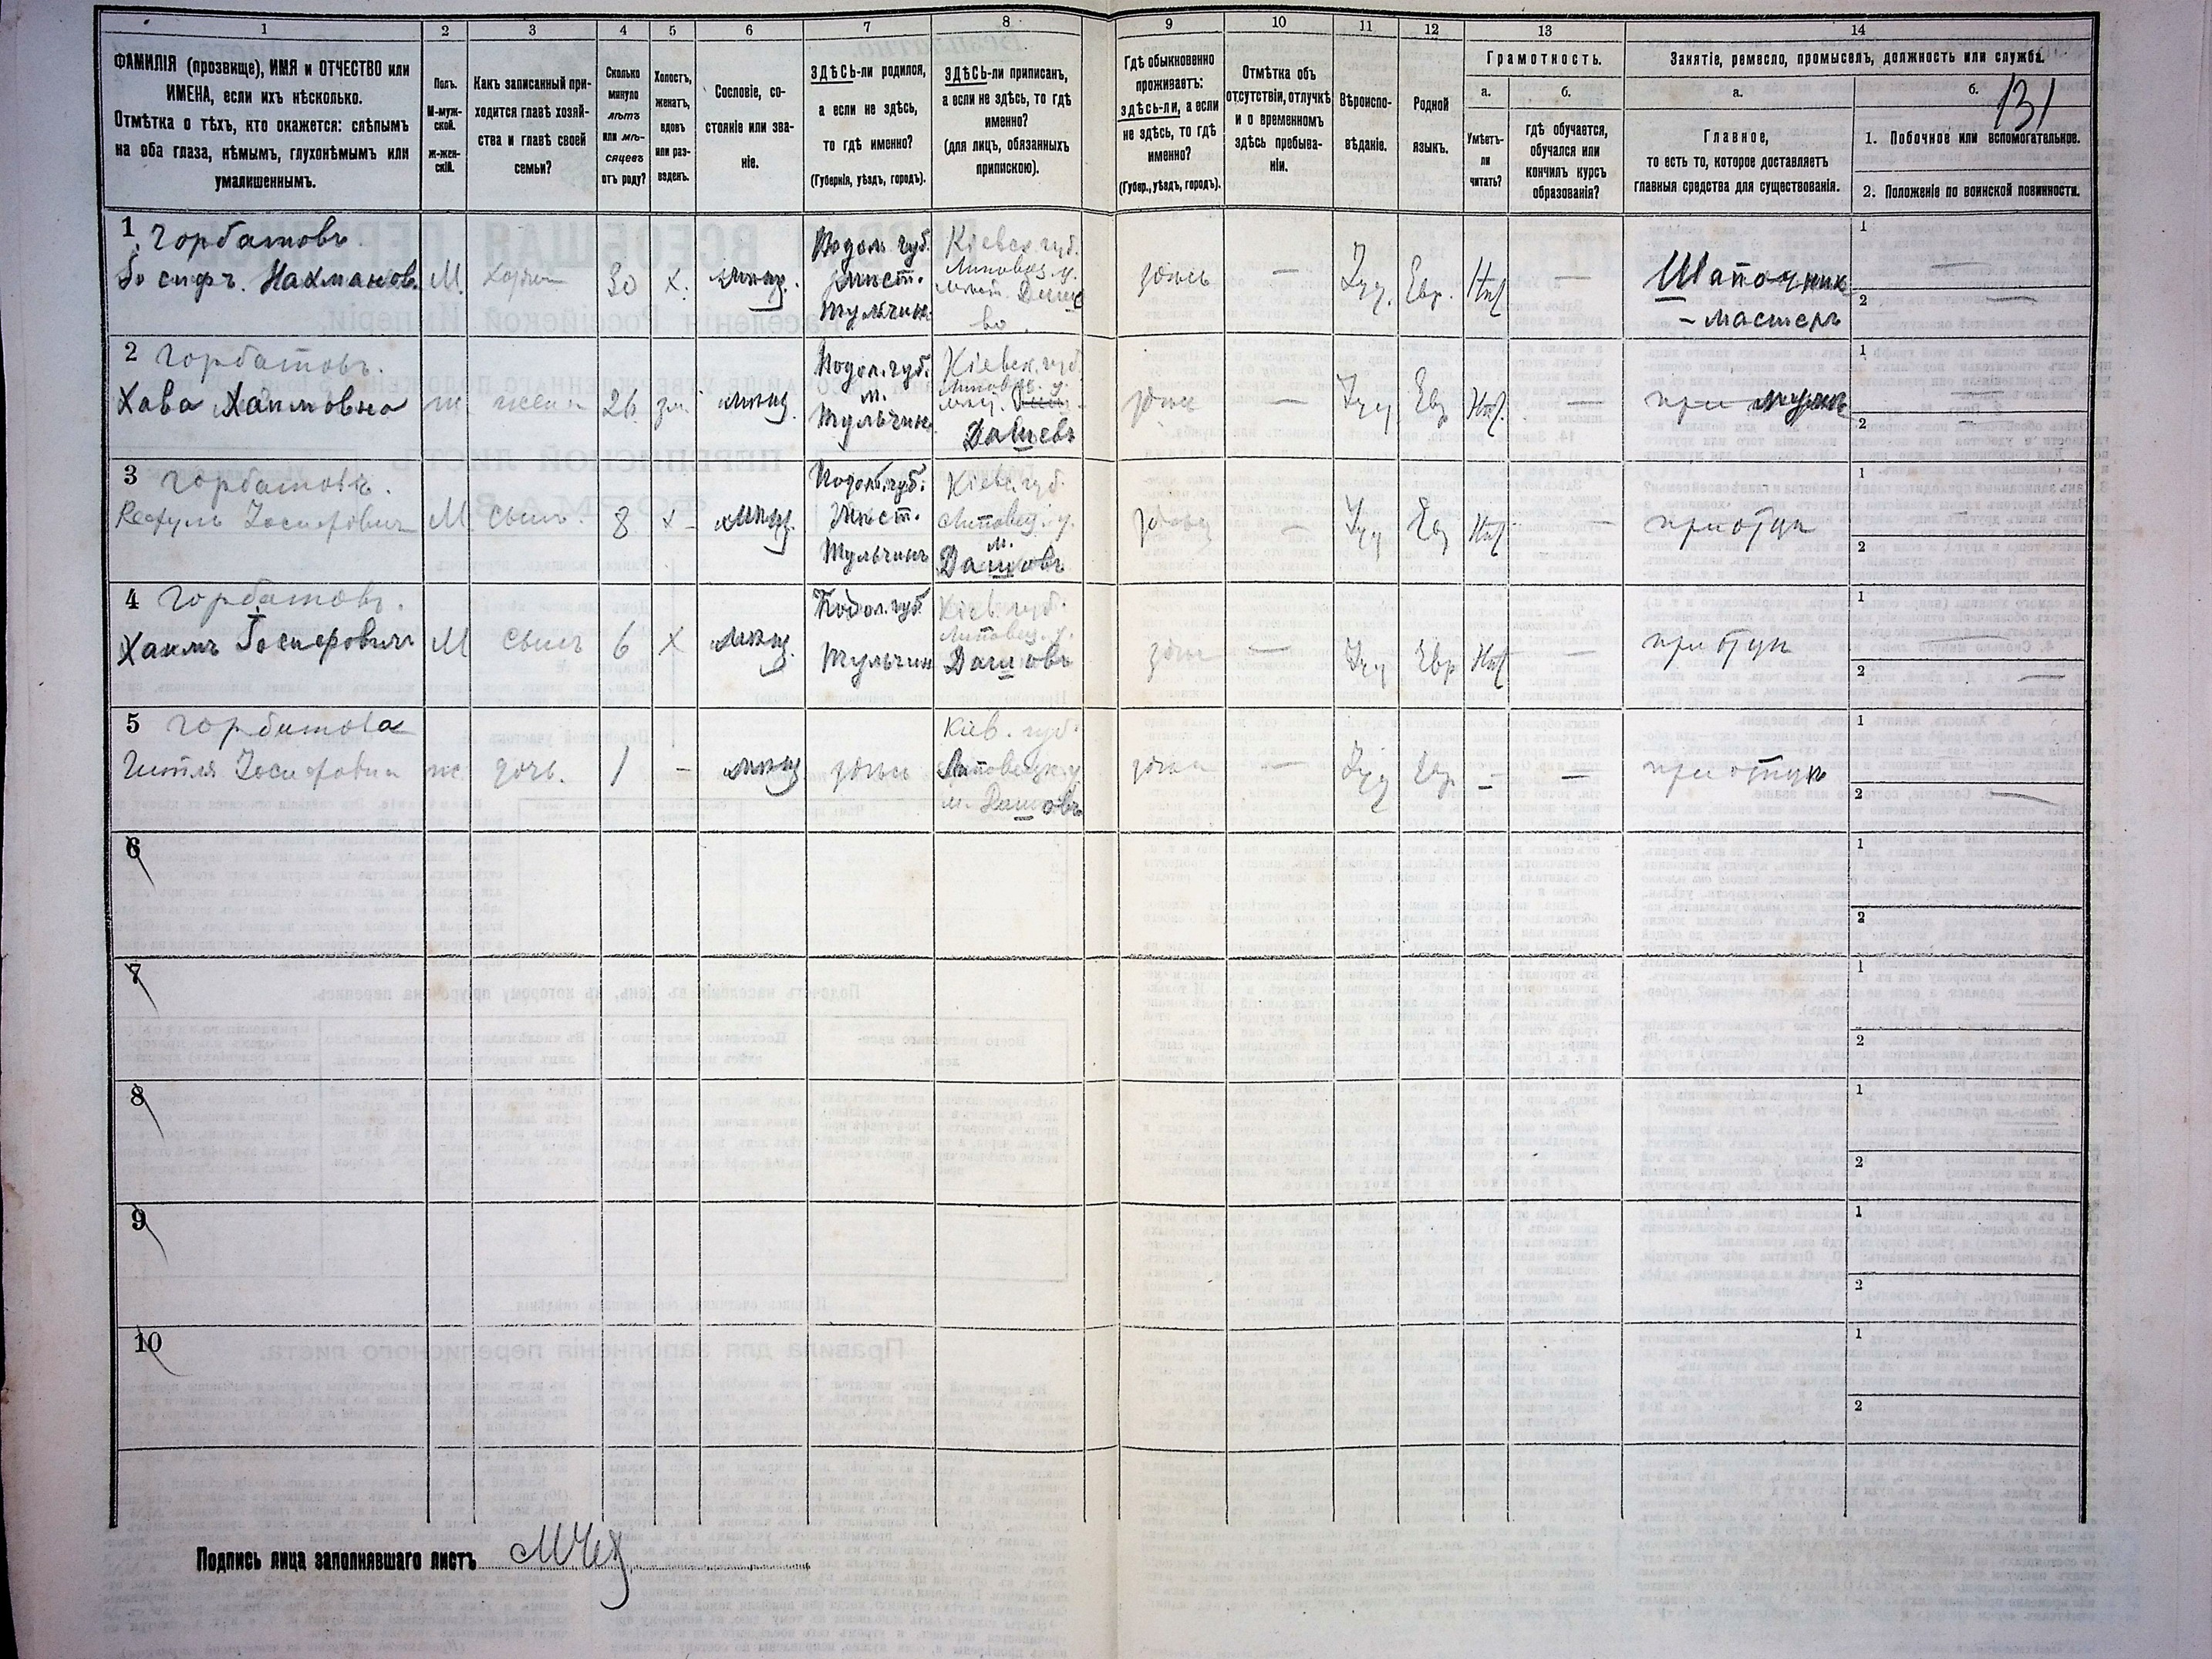 1 2 3 4 5 6 7 8 9 10 11 12 13 14
ФАМИЛІЯ (прозвище), ИМЯ и ОТЧЕСТВО или
ИМЕНА, если ихъ нѣсколько.
Отмѣтка о тѣхъ, кто окажется: слѣпымъ
на оба глаза, нѣмымъ, глухонѣмымъ или
умалишеннымъ.
Полъ.
М-муж-
ской.
ж-жен-
скій.
Какъ записанный при-
ходится главѣ хозяй-
ства и главѣ своей
семьи?
Сколько
минуло
лѣтъ
или мѣ-
сяцевъ
отъ роду?
Холостъ,
женатъ,
вдовъ
или раз-
веденъ.
Сословіе, со-
стояніе или зва-
ніе.
ЗДѢСЬ-ли родился,
а если не здѣсь,
то гдѣ именно?
(Губернія, уѣздъ, городъ).
ЗДѢСЬ-ли приписанъ,
а если не здѣсь, то гдѣ
именно?
(для лицъ, обязанныхъ
припискою).
Гдѣ обыкновенно
проживаетъ:
здѣсь-ли, а если
не здѣсь, то гдѣ
именно?
(Губер., уѣздъ, городъ).
Отмѣтка объ
отсутствіи, отлучкѣ
и о временномъ
здѣсь пребыва-
ніи.
Вѣроиспо-
вѣданіе.
Родной
языкъ.
Грамотность.
а.
Умѣетъ-
ли
читать?
б.
гдѣ обучается,
обучался или
кончилъ курсъ
образованія?
Занятіе, ремесло, промыселъ, должность или служба.
а.
Главное,
то есть то, которое доставляетъ
главныя средства для существованія.
б.
131
1. Побочное или вспомогательное.
2. Положеніе по воинской повинности.
1 Горбатовъ
Іосифъ Нахманов. М. 30 х. мѣщ.
Подол. губ.
мѣст.
Тульчинъ
Кіевск. губ.
Липовец. у.
здѣсь — Іуд. Евр. Нѣт —
Шапочник
- мастеръ
1 —
2 —
2 Горбатовъ.
Хава Хаимовна ж. жена 26 зм. мѣщ.
Подол. губ.
м.
Тульчин.
Кіевск. губ.
Липовец. у.
Дашевъ
здѣсь — Іуд Евр Нѣт. —
при мужѣ
1 —
2 —
3 Горбатовъ.
Іосифович М сынъ. 8 х - мѣщ.
Подол. губ.
Мѣст.
Тульчинъ
Кіев. губ.
Липовец. у.
м.
Дашовъ
здѣсь — Іуд Евр Нѣт —
при отцѣ
1
2
4 Горбатовъ.
Хаимъ Іосифовичъ М сынъ 6 Х мѣщ.
Подол. губ
Тульчин
Кіев. губ.
Липовец. у.
Дашовъ
здѣсь — Іуд Евр Нѣт
при отцѣ
1 —
2 —
5 Горбатова
Гитля Іосифовна ж. дочь. 1 - мѣщ здѣсь
Кіев. губ.
Липовецк. у
м. Дашовъ
здѣсь — Іуд Евр. - —
при отцѣ
1
2 —
6
1
2
7
1
2
8
1
2
9
1
2
10
1
2
Подпись лица заполнявшаго листъ